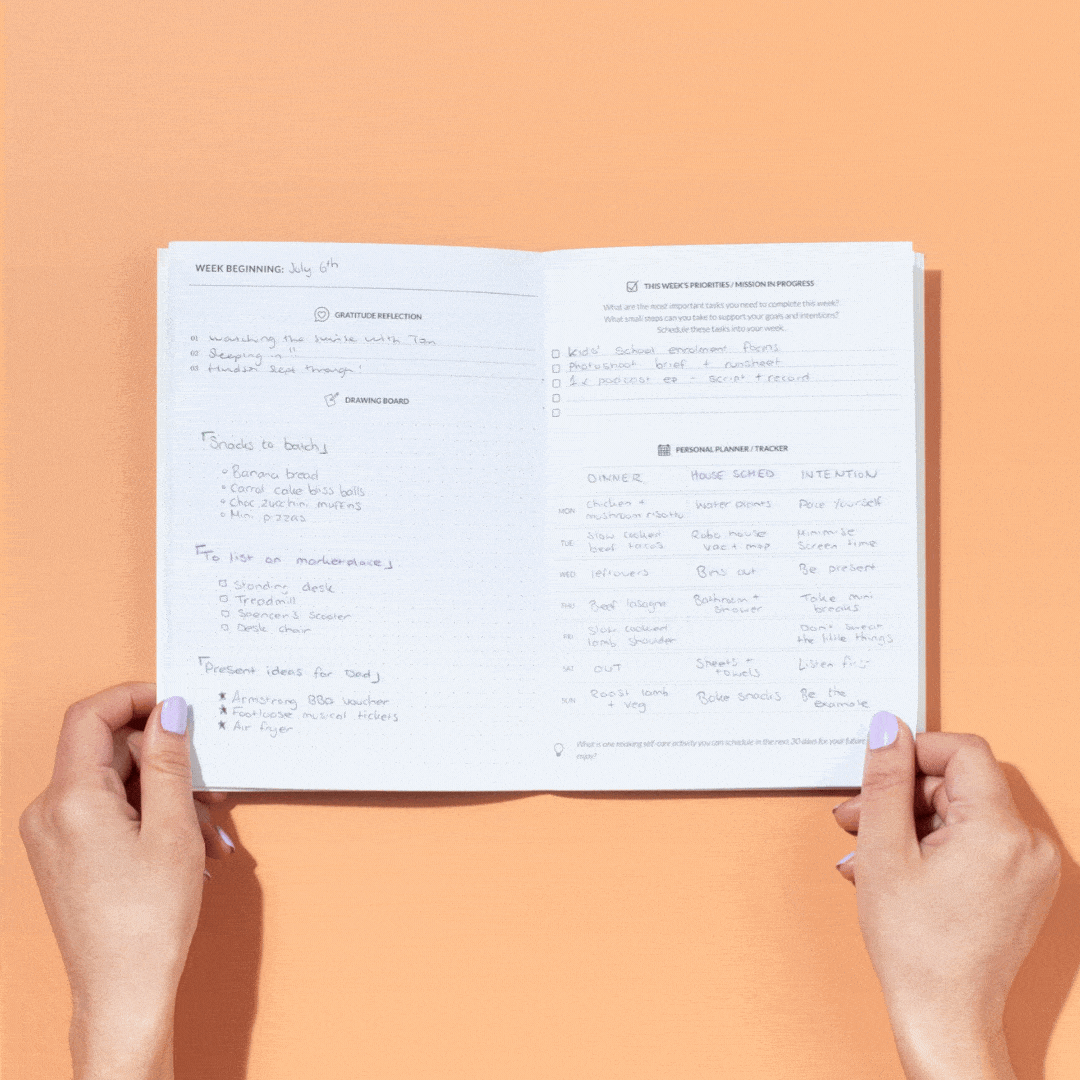 WEEK BEGINNING: July 6th
GRATITUDE REFLECTION
01 watching the sunrise with Tan
02 Sleeping in !!
03 Hudson slept through!
DRAWING BOARD
「Snacks to batch」
Banana bread
Carrot cake bliss balls
Choc zucchini muffins
Mini pizzas
「To list on marketplace」
Standing desk
Treadmill
Spencer's scooter
Desk chair
「Present ideas for Dad」
★ Armstrong BBQ voucher
★ Footloose musical tickets
★ Air fryer
THIS WEEK'S PRIORITIES / MISSION IN PROGRESS
What are the most important tasks you need to complete this week?
What small steps can you take to support your goals and intentions?
Schedule these tasks into your week.
Kids' School enrolment forms
Photoshoot brief + runsheet
1 x podcast ep - script + record
PERSONAL PLANNER / TRACKER
DINNER HOUSE SCHED INTENTION
MON Chicken + mushroom risotto Water plants Pace yourself
TUE Slow cooked beef tacos Robo house vac + mop Minimise screen time
WED leftovers Bins out Be present
THU Beef lasagne Bathroom + shower Take mini breaks
FRI Slow cooked lamb shoulder Don't sweat the little things
SAT OUT Sheets + towels Listen first
SUN Roast lamb + veg Bake snacks Be the example
What is one making self-care activity you can schedule in the next 30 days for your future
enjoy?